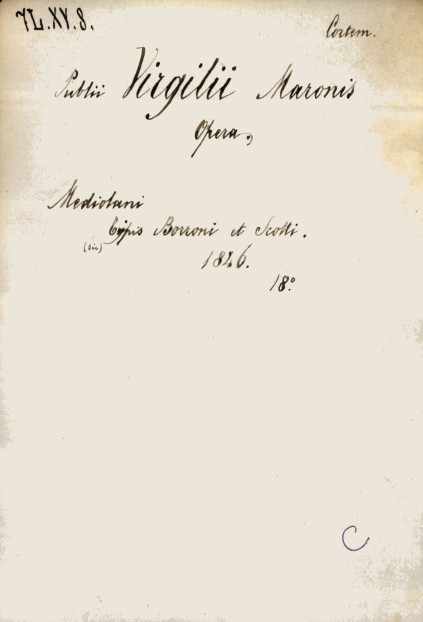 7L.XV.8.
Cortem.
Publii Virgilii Maronis
Opera,
Mediolani
Typis Borroni et Scotti.
(sic)
1846.
18°
C